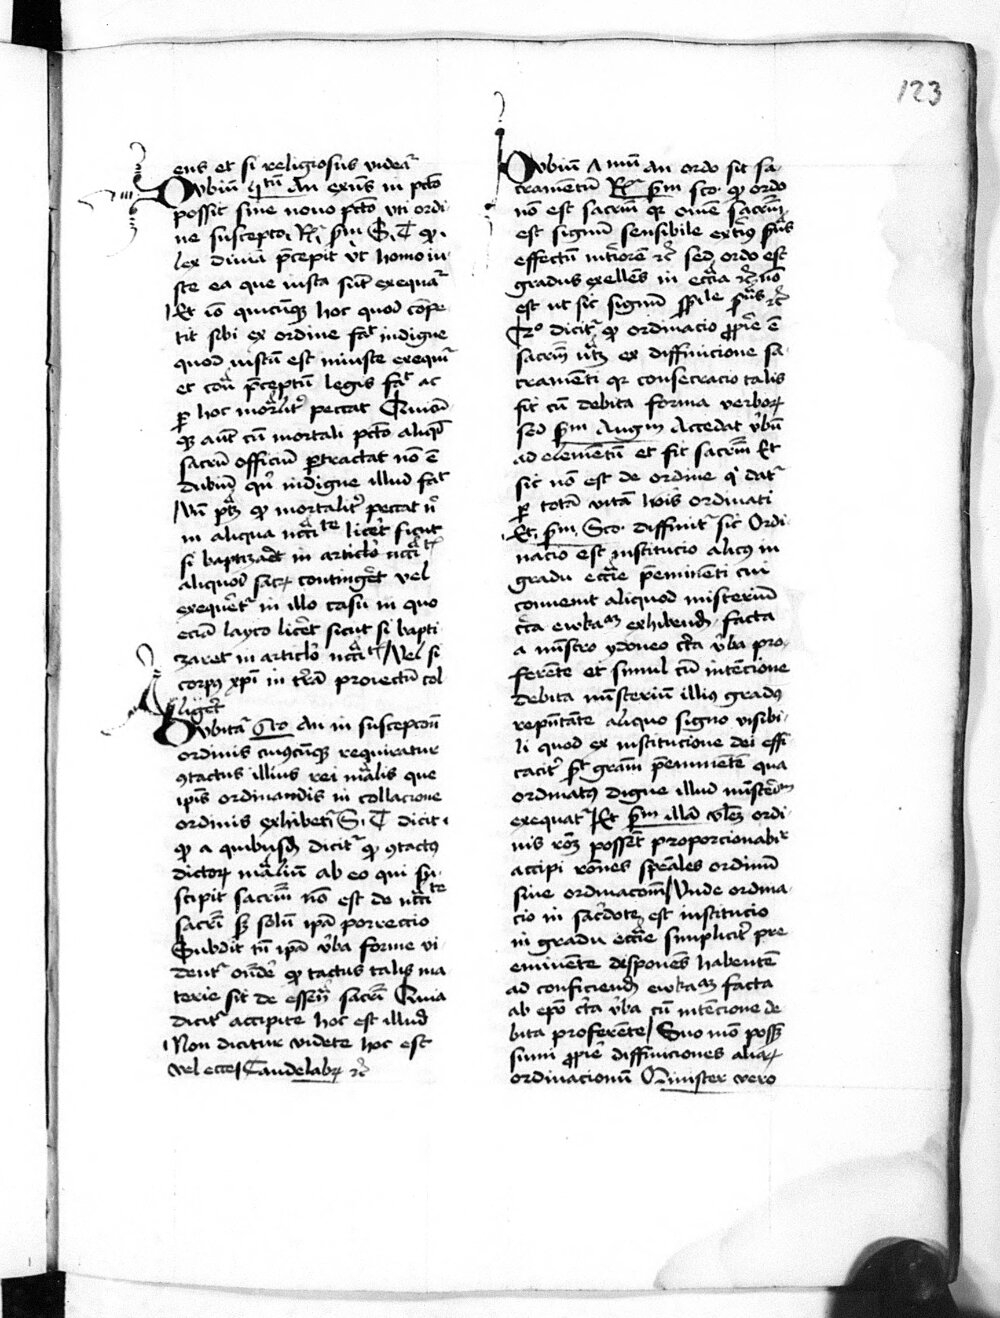 123
ens et si religiosus videatr
Dubiu qrtu An exns in pcto
possit sine novo pcto vti ordi
ne suscepto Rx sm S T qz
lex divia pcepit vt homo iu
ste ea que iusta sut exequatr
Et io quicuqz hoc quod compe
tit sibi ex ordine fact indigne
quod iustu est iniuste exequitr
et contra pceptu legis fact ac
p hoc mortalitr peccat Quicu
qz aut cu mortali pcto aliqd
sacru officiu ptractat no e
dubiu qn indigne illud fact
Vn ptz qz mortalitr peccat ni
in aliqua ncctate licet sicut
si baptizaret in articlo nccitatis
aliquod sacr contingeret vel
exequeretr in illo casu in quo
ecia layco liceret sicut si bapti
zaret in articlo nccitatis Vel si
corpus xpi in tra proiectu col
ligeret
Dubitatr Sto An in susceptoe
ordinis cuiuscuqz requiratur
9tactus illius rei malis que
ipis ordinandis in collacione
ordinis exhibetr S T dicit
qz a quibusda dicitr qz 9tactus
dictor maliu ab eo qui su
scipit sacrm no est de nccitate
sacri sz solu ipa porreccio
Subdit tn ipa vba forme vi
dentr ondere qz tactus talis ma
terie sit de essen sacri Quia
dicitr accipite hoc est illud
Non dicitur videte hoc est
vel ecce Candelabr rc
Dubiu A mm an ordo sit sa
cramentu Rx sm sco qz ordo
no est sacrm qr omne sacrm
est signu sensibile extius sns
effectu intiore rc sed ordo est
gradus exellens in ecctia rc no
est ut sic signu spuale rc
Cro dicitr qz ordinacio pprie e
sacrm utz ex diffinicione sa
cramenti qr consecracio talis
fit cu debita forma verbor
sed sm Augm Accedat vbu
ad elementu et fit sacrm Et
sic no est de ordine qi datr
p tota vita hois ordinati
Et sm Sco diffinitr sic Ordi
nacio est institucio alicus in
gradu ecctie peminenti cui
convenit aliquod misteriu
cca ewkam exhibend facta
a mistro ydoneo cta vba pro
ferete et simul cu intencione
debita misteriu illius gradus
repntante aliquo signo visibi
li quod ex institucione dei effi
cacitr st gram peminente qua
ordinatus digne illud misteriu
exequatr Et sm illa vlez ordi
nis rone possent proporcionabir
accipi rones speales ordinu
sive ordinaconu Unde ordina
cio in sacdote est institucio
in gradu ecctie simplicitr pre
eminente disponens habente
ad conficiend ewkam facta
ab epo cta vba cu intencione de
bita proferente Suo mo possz
sumi pprie diffiniciones aliar
ordinacionu Minister vero